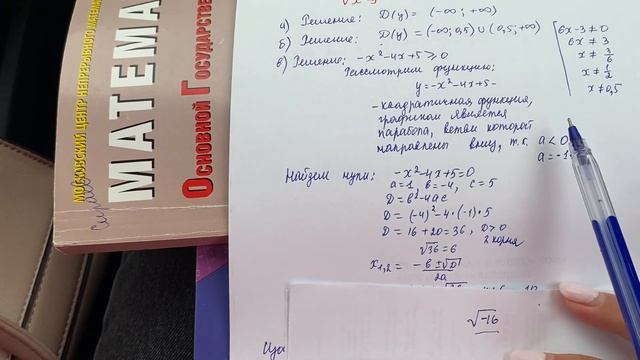 МОСКОВСКИЙ ЦЕНТР НЕПРЕРЫВНОГО МАТЕМ
МАТЕМА
ОСНОВНОЙ ГОСУДАРСТВЕ
а) Решение: D(y) = (-∞; +∞)
б) Решение: D(y) = (-∞; 0,5) ∪ (0,5; +∞)
6x-3≠0
6x≠3
x≠3/6
x≠1/2
x≠0,5
в) Решение: -x²-4x+5≥0
Рассмотрим функцию:
y=-x²-4x+5-
-квадратичная функция,
графиком является
парабола, ветви которой
направлены вниз, т.к. a<0
a=-1
Найдем нули: -x²-4x+5=0
a=1 в=-4, c=5
D=в²-4ac
D=(-4)²-4·(-1)·5
D=16+20=36, D>0
√36=6 2 корня
x1,2 = -в±√D/2a
√-16